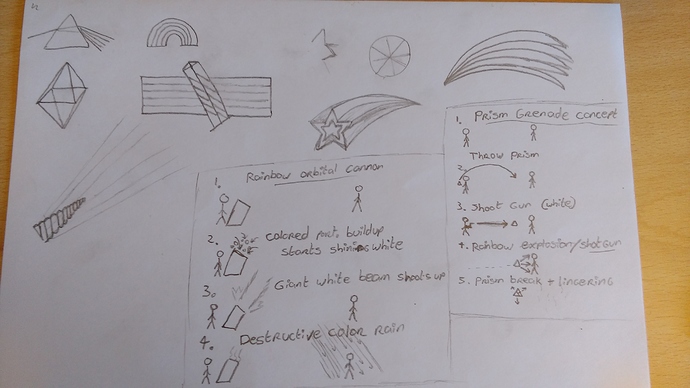 Rainbow orbital cannon
1.
2. colored part. buildup
starts shining white
3. Giant white beam shoots up
4. Destructive color rain
Prism Grenade concept
1.
Throw Prism
2.
3. Shoot Gun (white)
4. Rainbow explosion/shotgun
5. Prism break + lingering